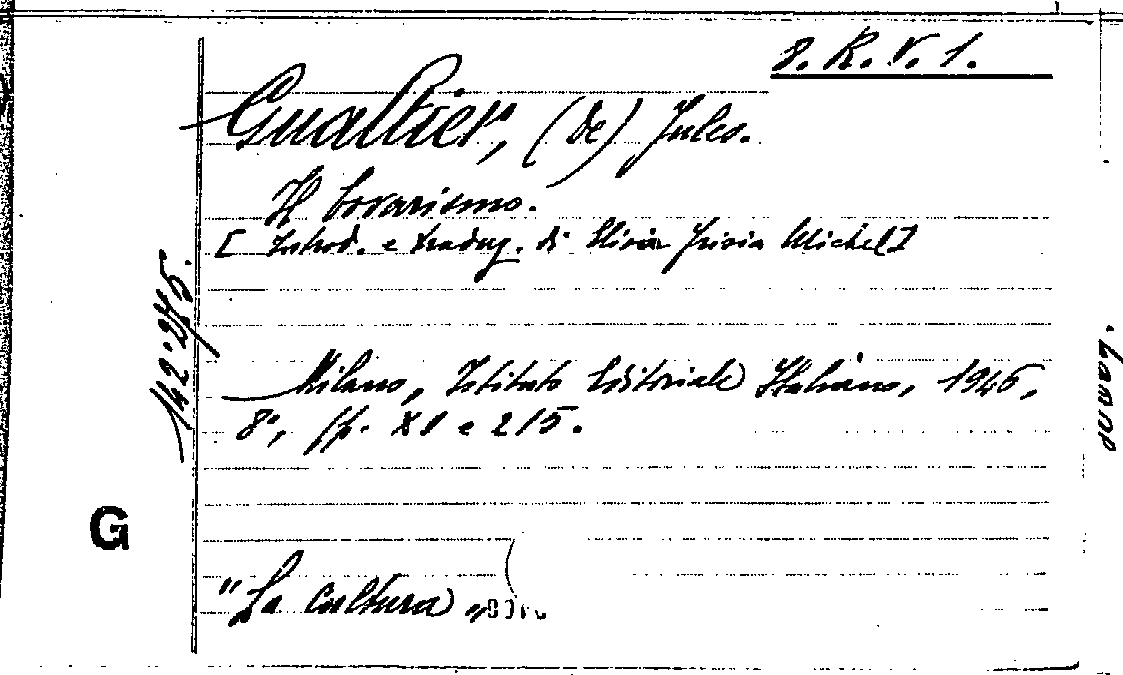 8. R. V. 1.
Gualtier, (de) Jules.
Il bovarismo.
[Introd. e traduz. di Silvia Michel]
Milano, Istituto Editoriale Italiano, 1946,
8°, pp. XI e 215.
142.245.
G
"La cultura"